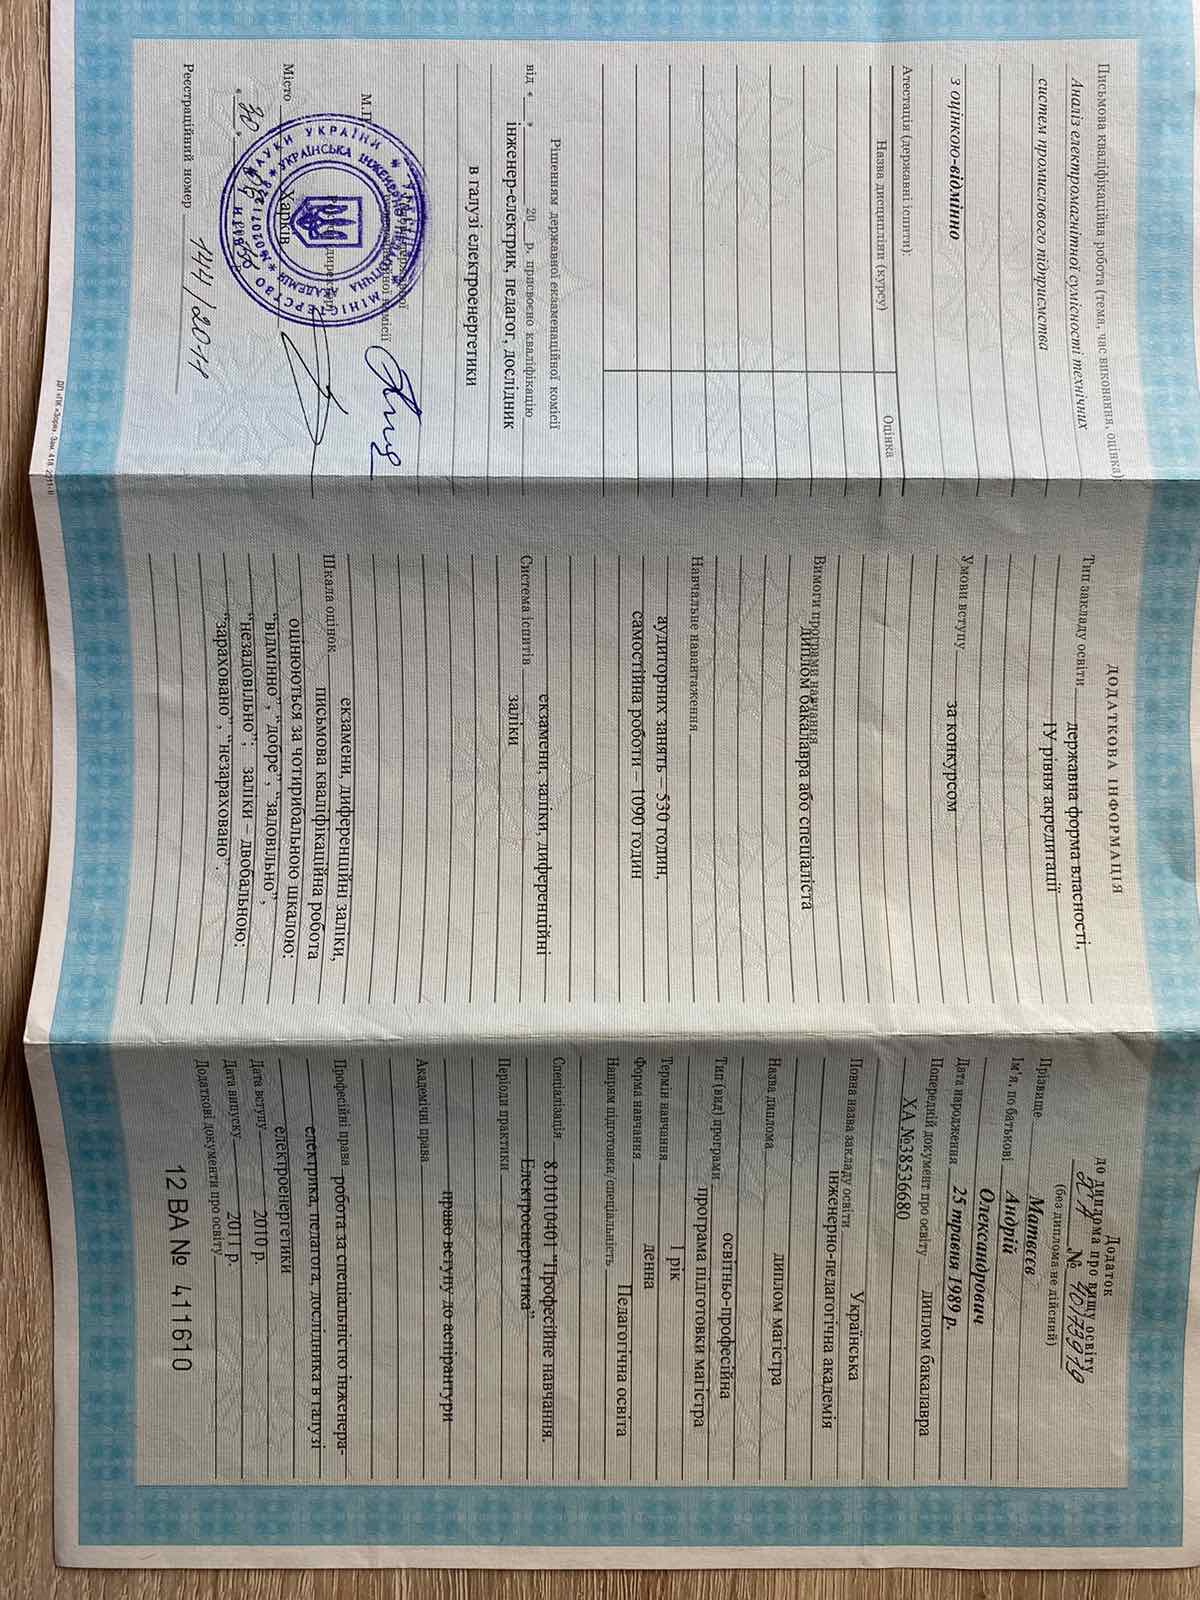 Додаток
до диплома про вищу освіту
ХА № 40173979
(без диплома не дійсний)
Прізвище Матвєєв
Ім'я, по батькові Андрій
Олександрович
Дата народження 25 травня 1989 р.
Попередній документ про освіту диплом бакалавра
ХА №38536680
Повна назва закладу освіти Українська
інженерно-педагогічна академія
Назва диплома диплом магістра
Тип (вид) програми освітньо-професійна
програма підготовки магістра
Термін навчання 1 рік
Форма навчання денна
Напрям підготовки/спеціальність Педагогічна освіта
Спеціалізація 8.01010401 "Професійне навчання.
Електроенергетика"
Періоди практики
Академічні права право вступу до аспірантури
Професійні права робота за спеціальністю інженера-
електрика, педагога, дослідника в галузі
електроенергетики
Дата вступу 2010 р.
Дата випуску 2011 р.
Додаткові документи про освіту
12 ВА № 411610
ДОДАТКОВА ІНФОРМАЦІЯ
Тип закладу освіти державна форма власності,
ІУ рівня акредитації
Умови вступу за конкурсом
Вимоги програми навчання
диплом бакалавра або спеціаліста
Навчальне навантаження
аудиторних занять – 530 годин,
самостійна роботи – 1090 годин
Система іспитів екзамени, заліки, диференційні
заліки
Шкала оцінок екзамени, диференційні заліки,
письмова кваліфікаційна робота
оцінюються за чотирибальною шкалою:
"відмінно", "добре", "задовільно",
"незадовільно"; заліки – двобальною:
"зараховано", "незараховано".
Письмова кваліфікаційна робота (тема, час виконання, оцінка)
Аналіз електромагнітної сумісності технічних
систем промислового підприємства
з оцінкою-відмінно
Атестація (державні іспити):
Назва дисципліни (курсу) Оцінка
Рішенням державної екзаменаційної комісії
від « » 20 р. присвоєно кваліфікацію
інженер-електрик, педагог, дослідник
в галузі електроенергетики
М.П.
Місто Харків
Реєстраційний номер 144/2011
УКРАЇНСЬКА ІНЖЕНЕРНО-ПЕДАГОГІЧНА АКАДЕМІЯ